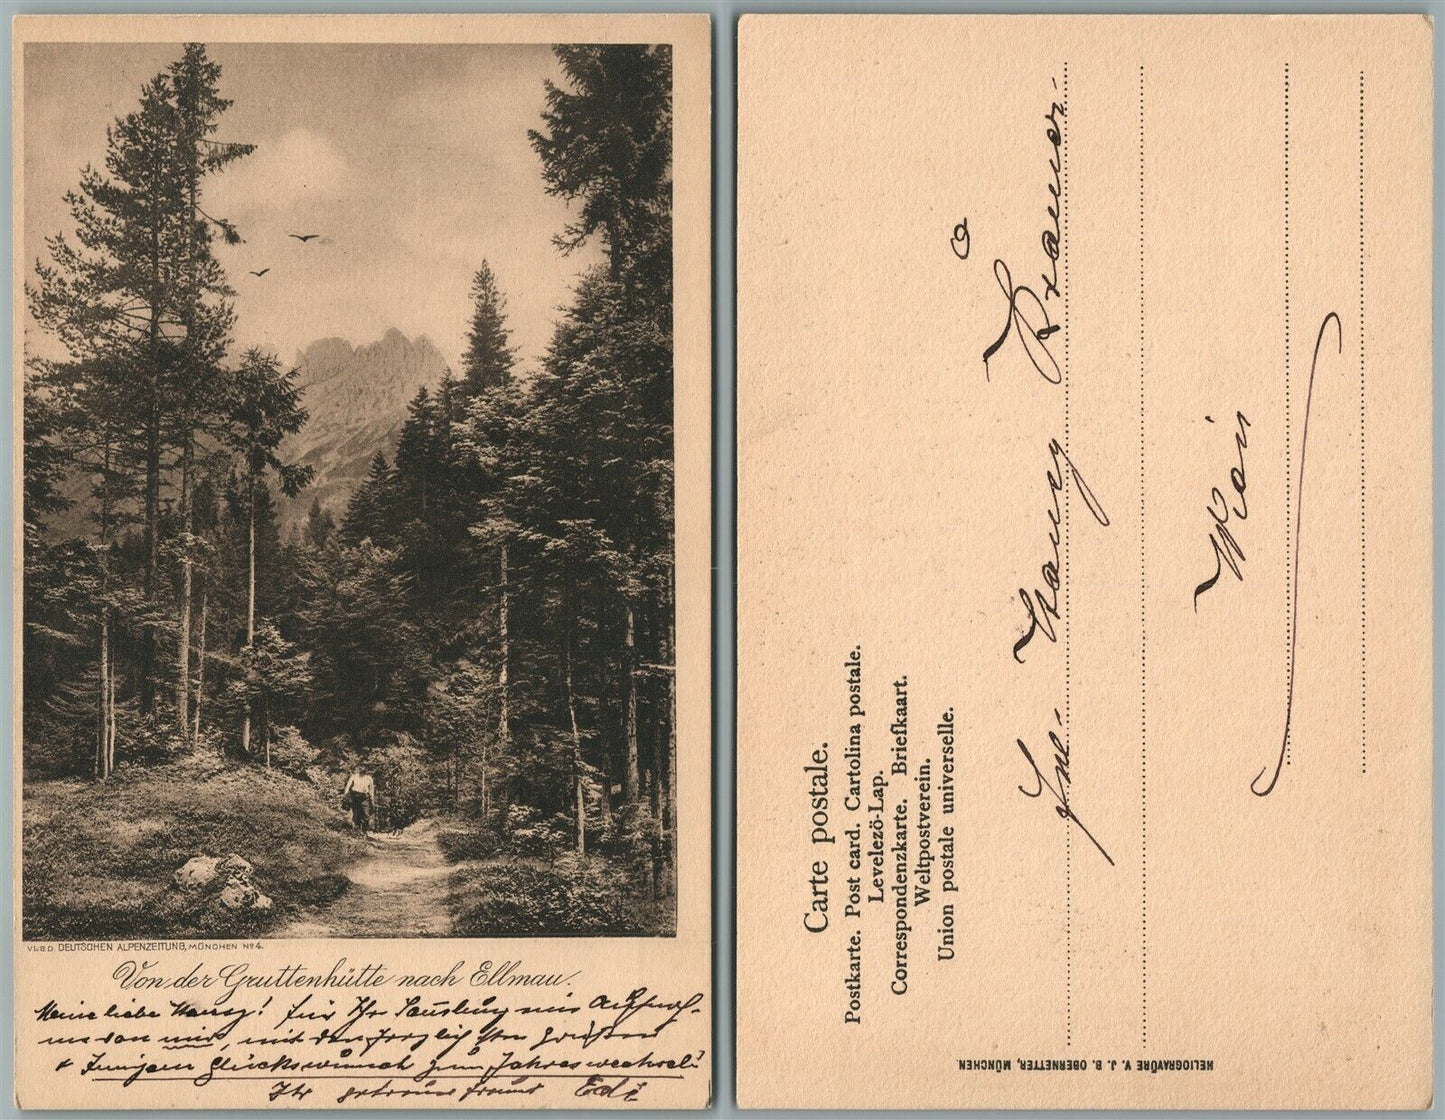 VLBD. DEUTSCHEN ALPENZEITUNG, MÜNCHEN No 4.
Von der Gruttenhütte nach Ellmau.
Meine liebe ! für Ihr
von mir, mit den herzlichsten Grüßen
+ Glückswunsch zum Jahreswechsel!
Ihr getreuer Freund Edi
Carte postale.
Postkarte. Post card. Cartolina postale.
Levelezö-Lap.
Correspondenzkarte. Briefkaart.
Weltpostverein.
Union postale universelle.
Kramer
HELIOGRAVÜRE V. J. B. OBERNETTER, MÜNCHEN